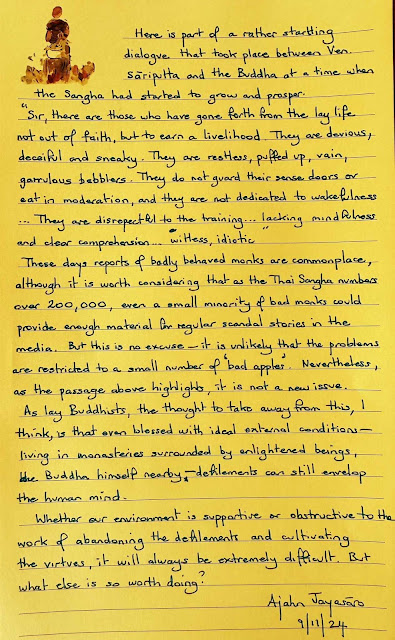 Here is part of a rather startling
dialogue that took place between Ven.
Sāriputta and the Buddha at a time when
the Sangha had started to grow and prosper.
"Sir, there are those who have gone forth from the lay life
not out of faith, but to earn a livelihood. They are devious,
deceiful and sneaky. They are restless, puffed up, vain,
garrulous babblers. They do not guard their sense doors or
eat in moderation, and they are not dedicated to wakefulness
... They are disrepectful to the training... lacking mindfulness
and clear comprehension... witless, idiotic"
These days reports of badly behaved monks are commonplace,
although it is worth considering that as the Thai Sangha numbers
over 200,000, even a small minority of bad monks could
provide enough material for regular scandal stories in the
media. But this is no excuse – it is unlikely that the problems
are restricted to a small number of "bad apples". Nevertheless,
as the passage above highlights, it is not a new issue.
As lay Buddhists, the thought to take away from this, I
think, is that even blessed with ideal external conditions –
living in monasteries surrounded by enlightened beings,
the Buddha himself nearby – defilements can still envelop
the human mind.
Whether our environment is supportive or obstructive to the
work of abandoning the defilements and cultivating
the virtues, it will always be extremely difficult. But
what else is so worth doing?
Ajahn Jayasāro
9/11/24